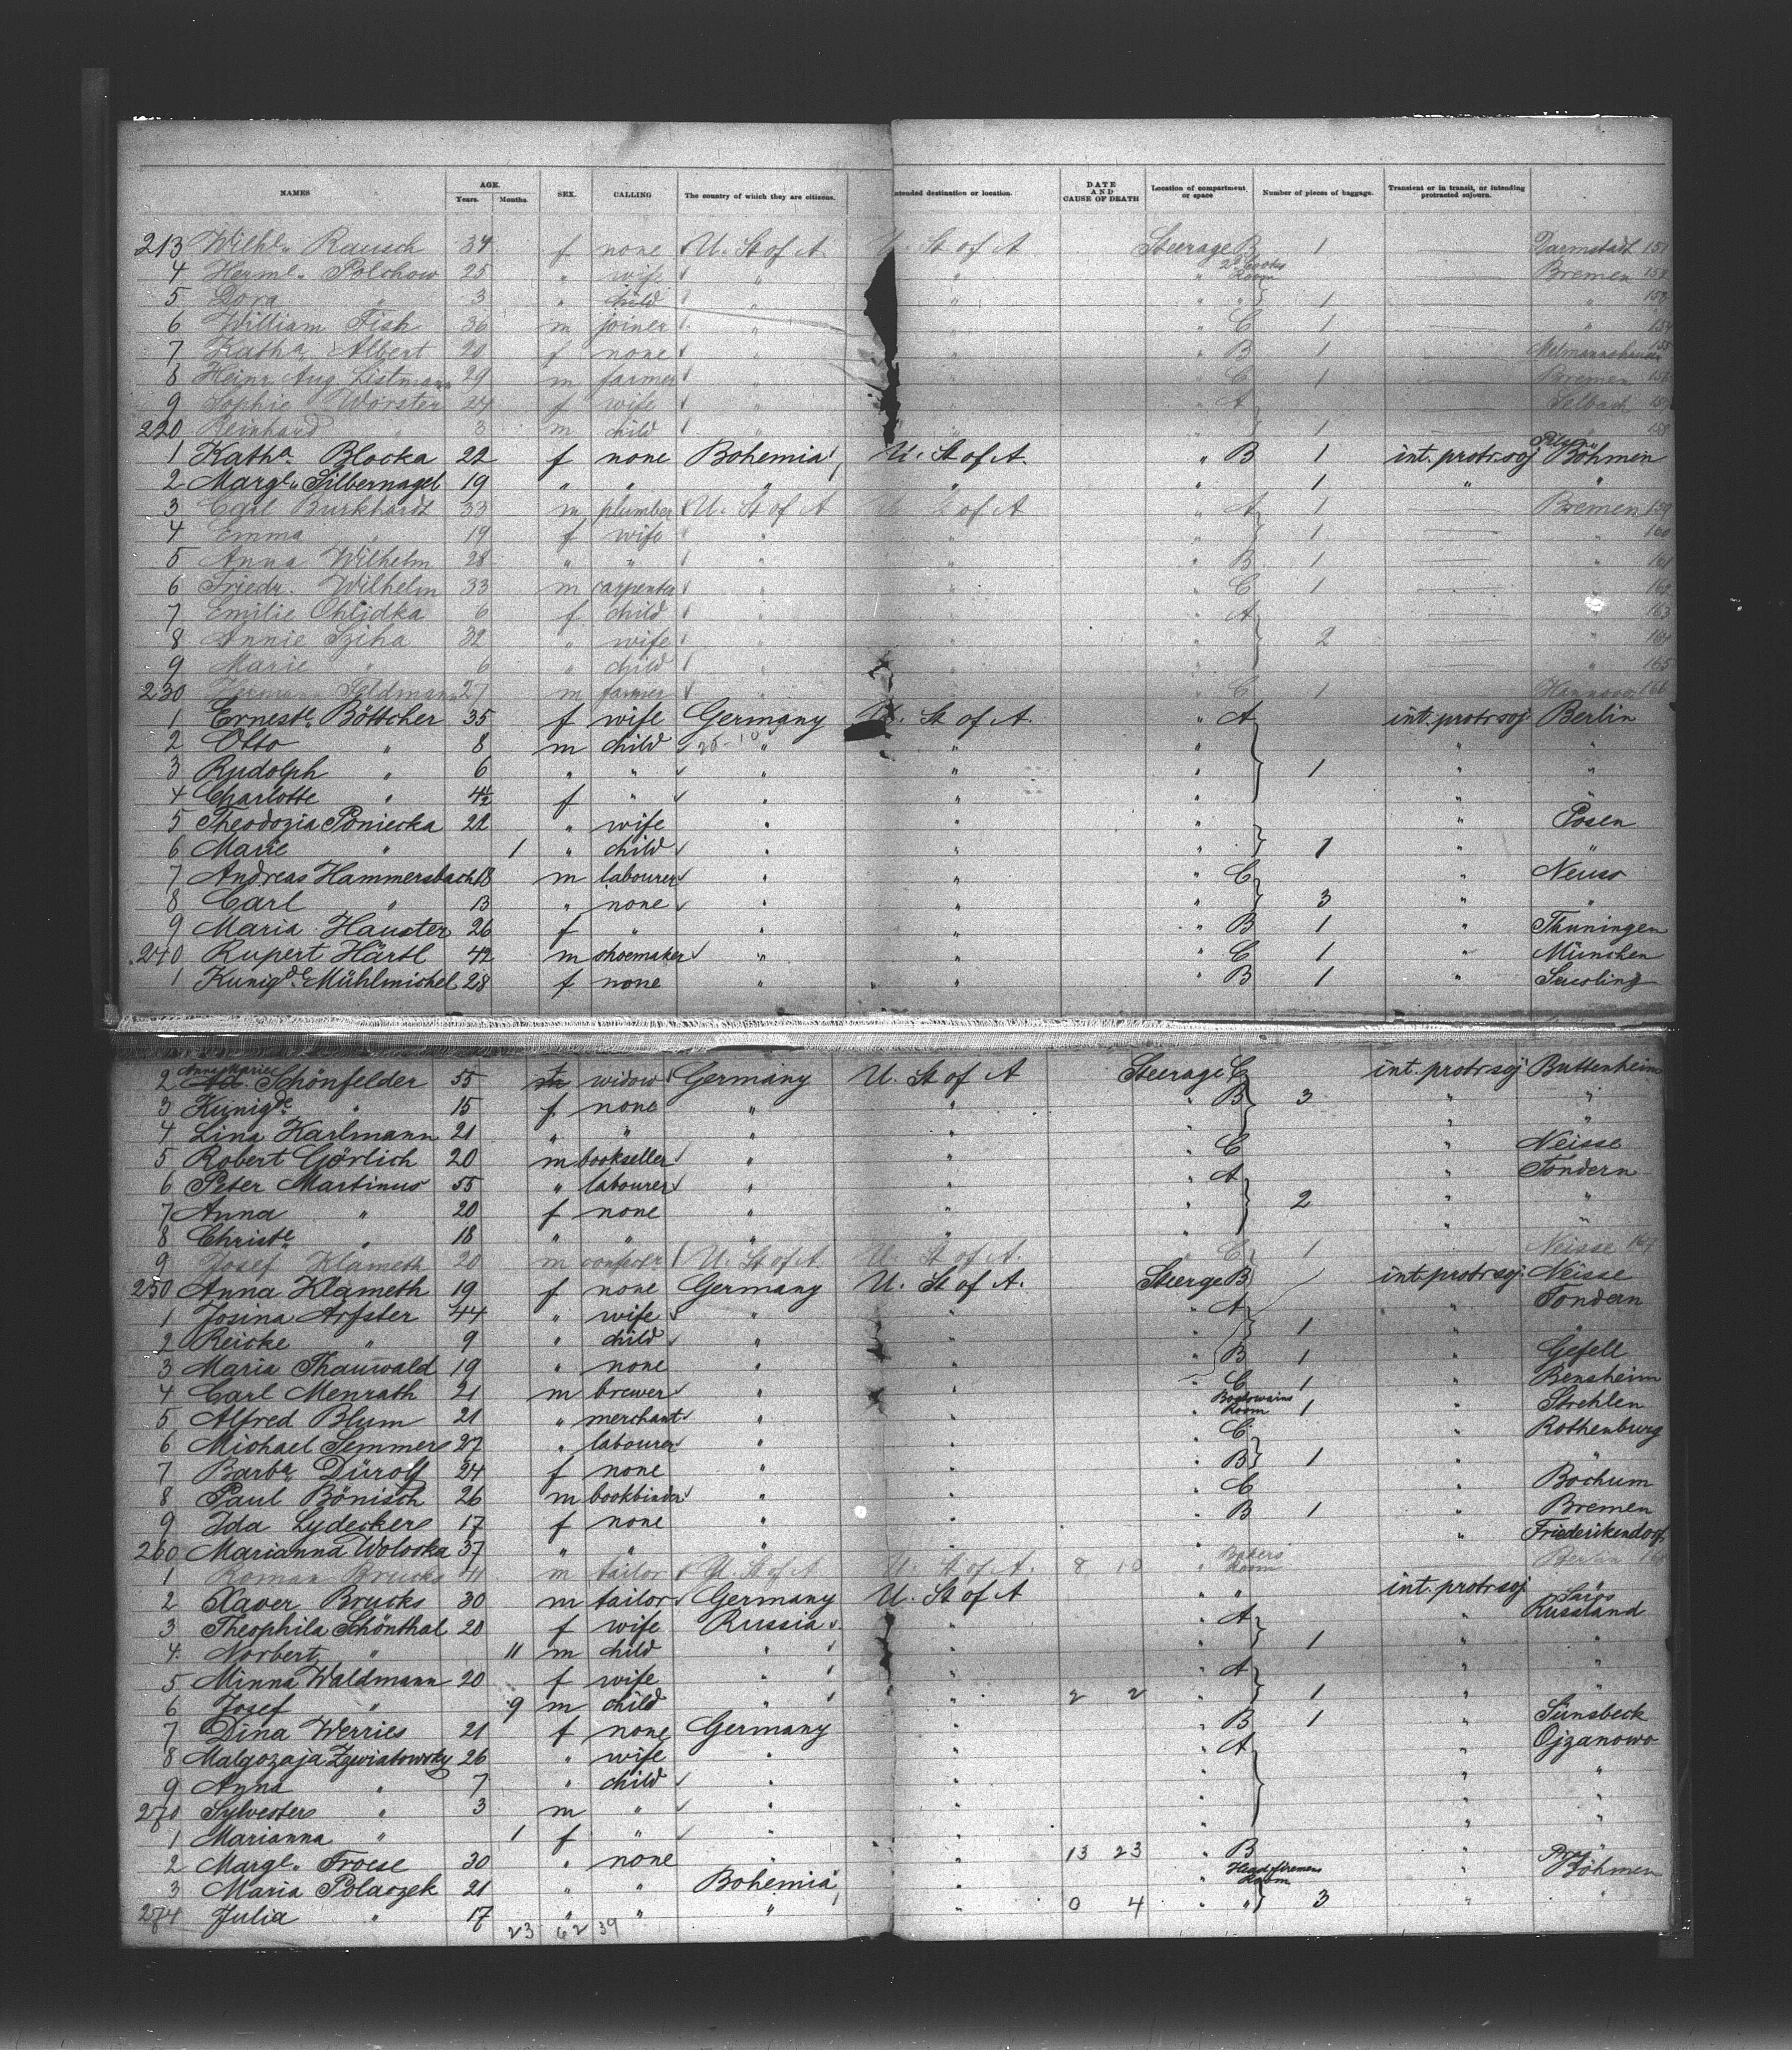 NAMES AGE. Years. Months. SEX. CALLING The country of which they are citizens. Intended destination or location. DATE AND CAUSE OF DEATH Location of compartment or space Number of pieces of baggage. Transient or in transit, or intending protracted sojourn.
213 Wilhe. Rausch 34 f none U. St of A U. St of A Steerage B 1 Darmstadt 151
4 Herme. Polchow 25 " wife " " " 2d Cooks Room Bremen 152
5 Dora " 3 " child " " " " 1 " 153
6 William Fish 36 m joiner " " " C 1 " 154
7 Katha. Albert 20 f none " " " B 1 155
8 Heinr. Aug. Listmann 29 m farmer " " " C 1 Bremen 156
9 Sophie Worster 24 f wife " " " A Selbach 157
220 Reinhard " 3 m child " " " 1 " 158
1 Katha. Blocka 22 f none Bohemia U. St of A. " B 1 int. protr. soj Böhmen
2 Margte. Silbernagel 19 " " " " " 1 " "
3 Carl Burkhardt 33 m plumber U. St of A St of A " A 1 Bremen 159
4 Emma " 19 f wife " " " 1 " 160
5 Anna Wilhelm 28 " " " " " B 1 " 161
6 Friedr. Wilhelm 33 m carpenter " " " C 1 " 162
7 Emilie Ohlidka 6 f child " " " A " 163
8 Annie Sziha 32 " wife " " " 2 " 164
9 Marie " 6 " child " " " 165
230 Hermann Feldmann 27 m farmer " " " C 1 Hannover 166
1 Erneste. Böttcher 35 f wife Germany U. St of A. " A int. protr soj Berlin
2 Otto " 8 m child " " " " "
3 Rudolph " 6 " " " " " 1 " "
4 Charlotte " 4½ f " " " " " "
5 Theodozia Poniecka 22 " wife " " " " Posen
6 Marie " 1 " child " " " 1 " "
7 Andreas Hammersbach 18 m labourer " " " C " Neuss
8 Carl " 13 " none " " " 3 " "
9 Maria Hauster 26 f " " " " B 1 " Thuningen
240 Rupert Härtl 42 m shoemaker " " " C 1 " München
1 Kunigde. Mühlmichel 28 f none " " " B 1 "
2 Anna Marie Schönfelder 55 widow Germany U. St of A Steerage C int. protr soj Buttenheim
3 Kunigde. " 15 f none " " " B 3 " "
4 Lina Karlmann 21 " " " " " " "
5 Robert Görlich 20 m bookseller " " " C " Neisse
6 Peter Martinus 55 " labourer " " " A " Tondern
7 Anna " 20 f none " " 2 " "
8 Christe. " 18 " " " " " " "
9 Josef Klameth 20 m U. St of A U. St of A. " C 1 Neisse 167
250 Anna Klameth 19 f none Germany U. St of A. Steerge B 1 int. protr soj. Neisse
1 Josina Arfster 44 " wife " " " A " Tondern
2 Reicke " 9 " child " " " 1 " "
3 Maria Thauwald 19 " none " " " B 1 " Gefell
4 Carl Menrath 21 m brewer " " " C 1 " Bensheim
5 Alfred Blum 21 " merchant " " " Boatswains Room 1 " Strehlen
6 Michael Semmer 27 " labourer " " " C " Rothenburg
7 Barba. Dürolf 24 f none " " " B 1 " "
8 Paul Bönisch 26 m bookbinder " " " C Bochum
9 Ida Lydecker 17 f none " " " B 1 " Bremen
260 Marianna Woloska 37 " " " " " " Friederikendorf
1 Roman Brucks 41 m tailor U. St of A U. St of A. 8 10 " Bakers Room Berlin 168
2 Xaver Brucks 30 m tailor Germany U. St of A " " int. protr soj "
3 Theophila Schönthal 20 f wife Russia " " A " Russland
4 Norbert " 11 m child " " " 1 " "
5 Minna Waldmann 20 f wife " " " A " "
6 Josef " 9 m child " " 2 2 " 1 " "
7 Dina Werries 21 f none Germany " " B 1 " Sünsbeck
8 Malgozaja Zywiatowsky 26 " wife " " " A " Ojzanowo
9 Anna " 7 " child " " " " "
270 Sylvester " 3 m " " " " " "
1 Marianna " 1 f " " " " " "
2 Margte. Froese 30 " none " " 13 23 " B "
3 Maria Polaczek 21 " " Bohemia " " Head firemens Room " Böhmen
274 Julia " 17 " " " " 0 4 " " 3 " "
23 62 39